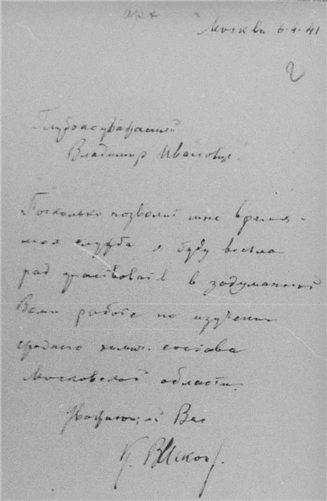 Москва 6-4-41
2
Глубокоуважаемый
Владимир Иванович!
Поскольку позволит мне время
и моя служба я буду весьма
рад участвовать в задуманной
Вами работе по изучению
среднего химич. состава
Московской области.
Уважающий Вас